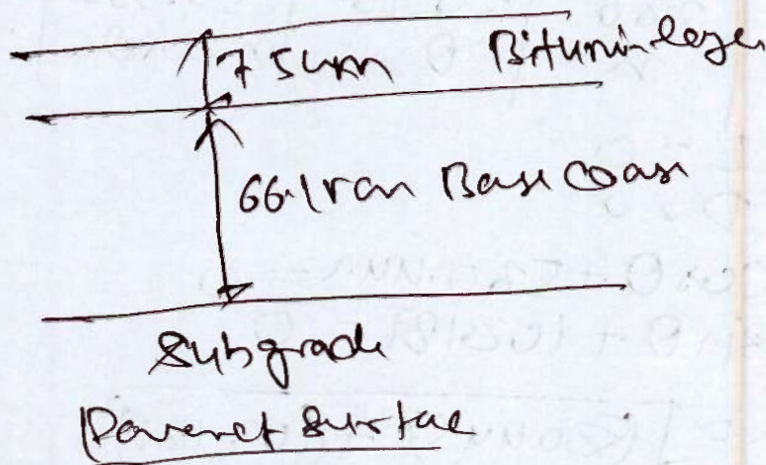 7.5cm Bitumin layer
66.1 cm Base Coase
Subgrade
Pavement Surface